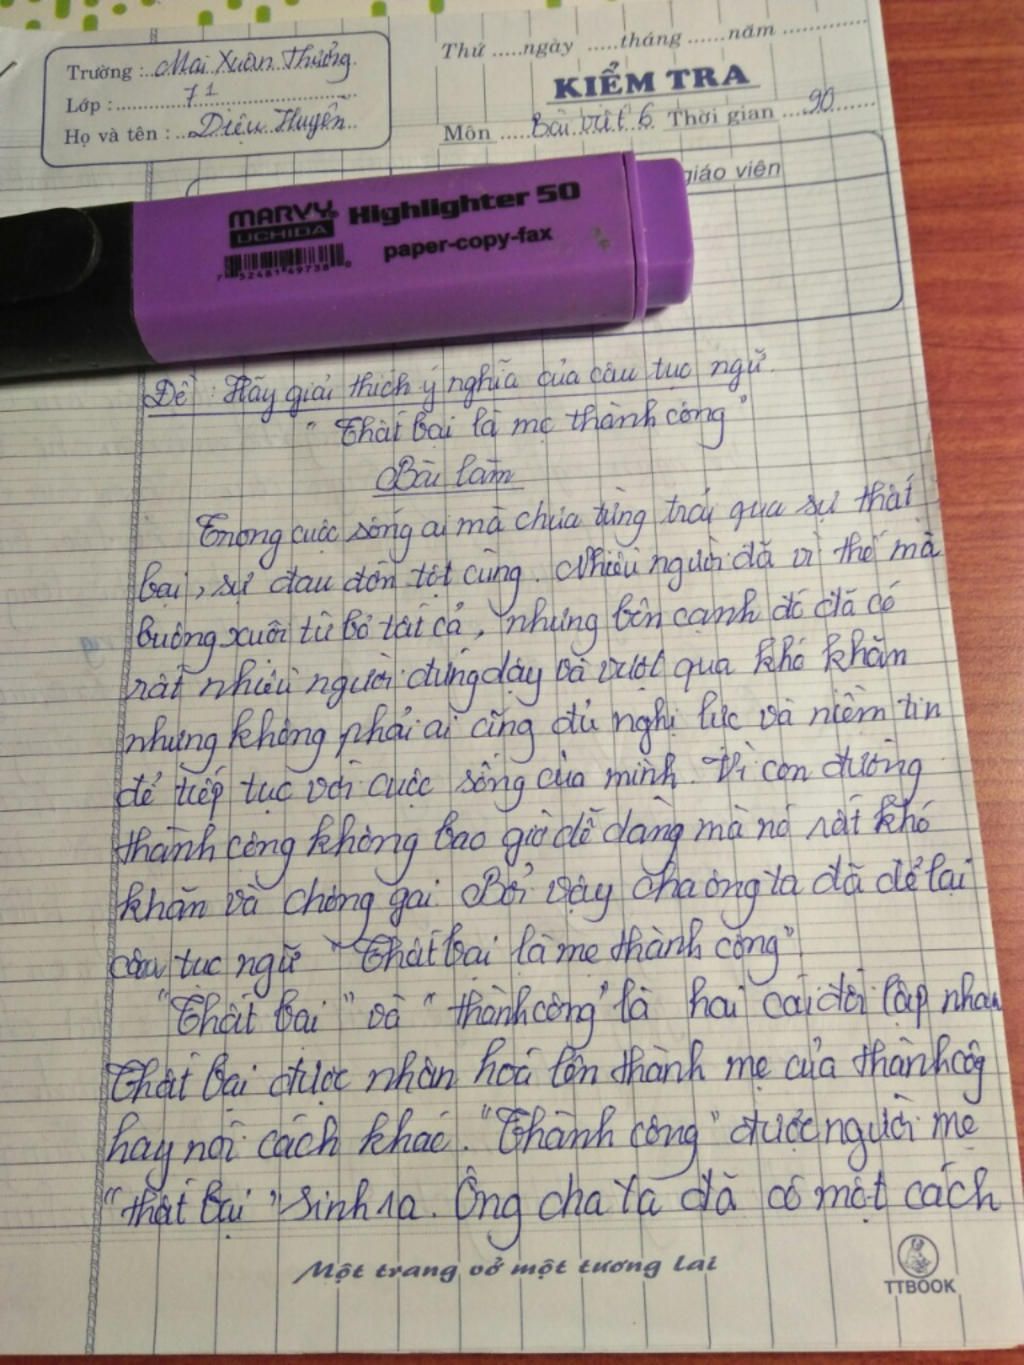 Thứ .....ngày .....tháng ......năm ............
Trường : Mai Xuân Thưởng
Lớp : 7 1
Họ và tên : Diệu Huyền
KIỂM TRA
Môn ..... Bài viết 6 Thời gian ... 90
giáo viên
MARVY® Highlighter 50
UCHIDA paper-copy-fax
7 52481 49738 0
Đề : Hãy giải thích ý nghĩa của câu tục ngữ.
" Thất bại là mẹ thành công "
Bài làm
Trong cuộc sống ai mà chưa từng trải qua sự thất
bại, sự đau đớn tột cùng. Nhiều người đã vì thế mà
buông xuôi từ bỏ tất cả, nhưng bên cạnh đó đã có
rất nhiều người đứng dậy và vượt qua khó khăn
nhưng không phải ai cũng đủ nghị lực và niềm tin
để tiếp tục với cuộc sống của mình. Vì con đường
thành công không bao giờ dễ dàng mà nó rất khó
khăn và chông gai. Bởi vậy cha ông ta đã để lại
câu tục ngữ " Thất bại là mẹ thành công".
"Thất bại " và " thành công" là hai cái đối lập nhau
Thất bại được nhân hoá lên thành mẹ của thành côg
hay nói cách khác. "Thành công" được người mẹ
"thất bại" sinh ra. Ông cha ta đã có một cách
Một trang vở một tương lai
TTBOOK